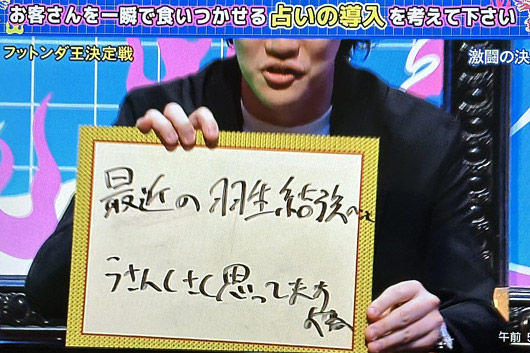 お客さんを一瞬で食いつかせる占いの導入を考えて下さい
フットンダ王決定戦
激闘の決
最近の羽生結弦
うさんくさく思ってます
午前